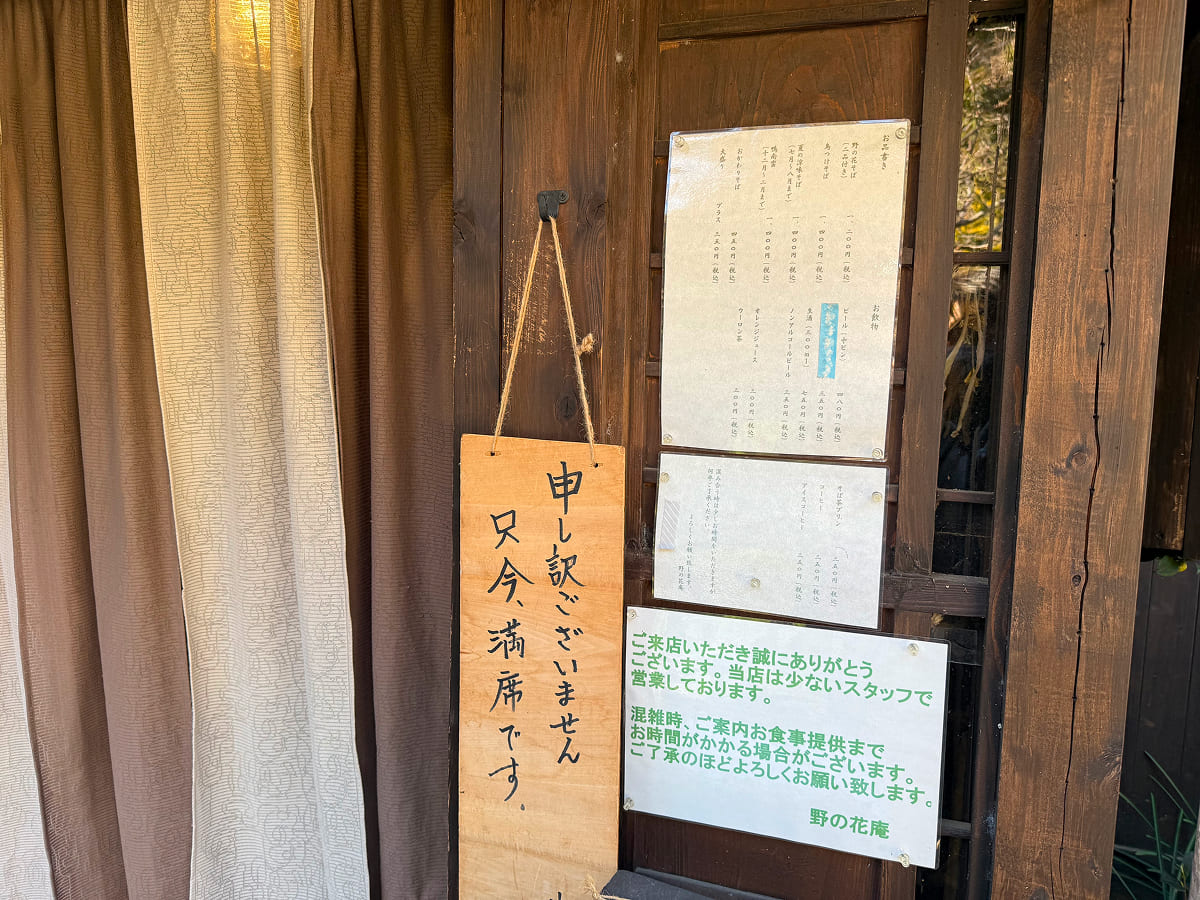 申し訳ございません
只今、満席です。
お品書き
野の花そば
(二品付き)
一、二〇〇円(税込)
鳥つけそば
一、四〇〇円(税込)
夏の涼味そば
(七月~八月まで)
一、四〇〇円(税込)
鴨南蛮
(十二月~二月まで)
一、四〇〇円(税込)
おかわりそば
四五〇円(税込)
大盛り
プラス 三五〇円(税込)
お飲物
ビール(中ビン)
四八〇円(税込)
三五〇円(税込)
生酒(三〇〇ml)
七五〇円(税込)
ノンアルコールビール
三五〇円(税込)
オレンジジュース
三〇〇円(税込)
ウーロン茶
三〇〇円(税込)
そば茶プリン
三五〇円(税込)
コーヒー
三五〇円(税込)
アイスコーヒー
三五〇円(税込)
混み合う時は少しお時間をいただきますが
何卒ご了承ください
よろしくお願い致します。
野の花庵
ご来店いただき誠にありがとう
ございます。当店は少ないスタッフで
営業しております。
混雑時、ご案内お食事提供まで
お時間がかかる場合がございます。
ご了承のほどよろしくお願い致します。
野の花庵